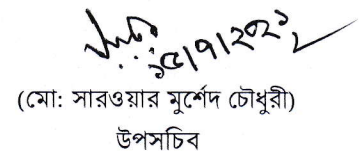 ১৫/৭/২০২১
(মো: সারওয়ার মুর্শেদ চৌধুরী)
উপসচিব